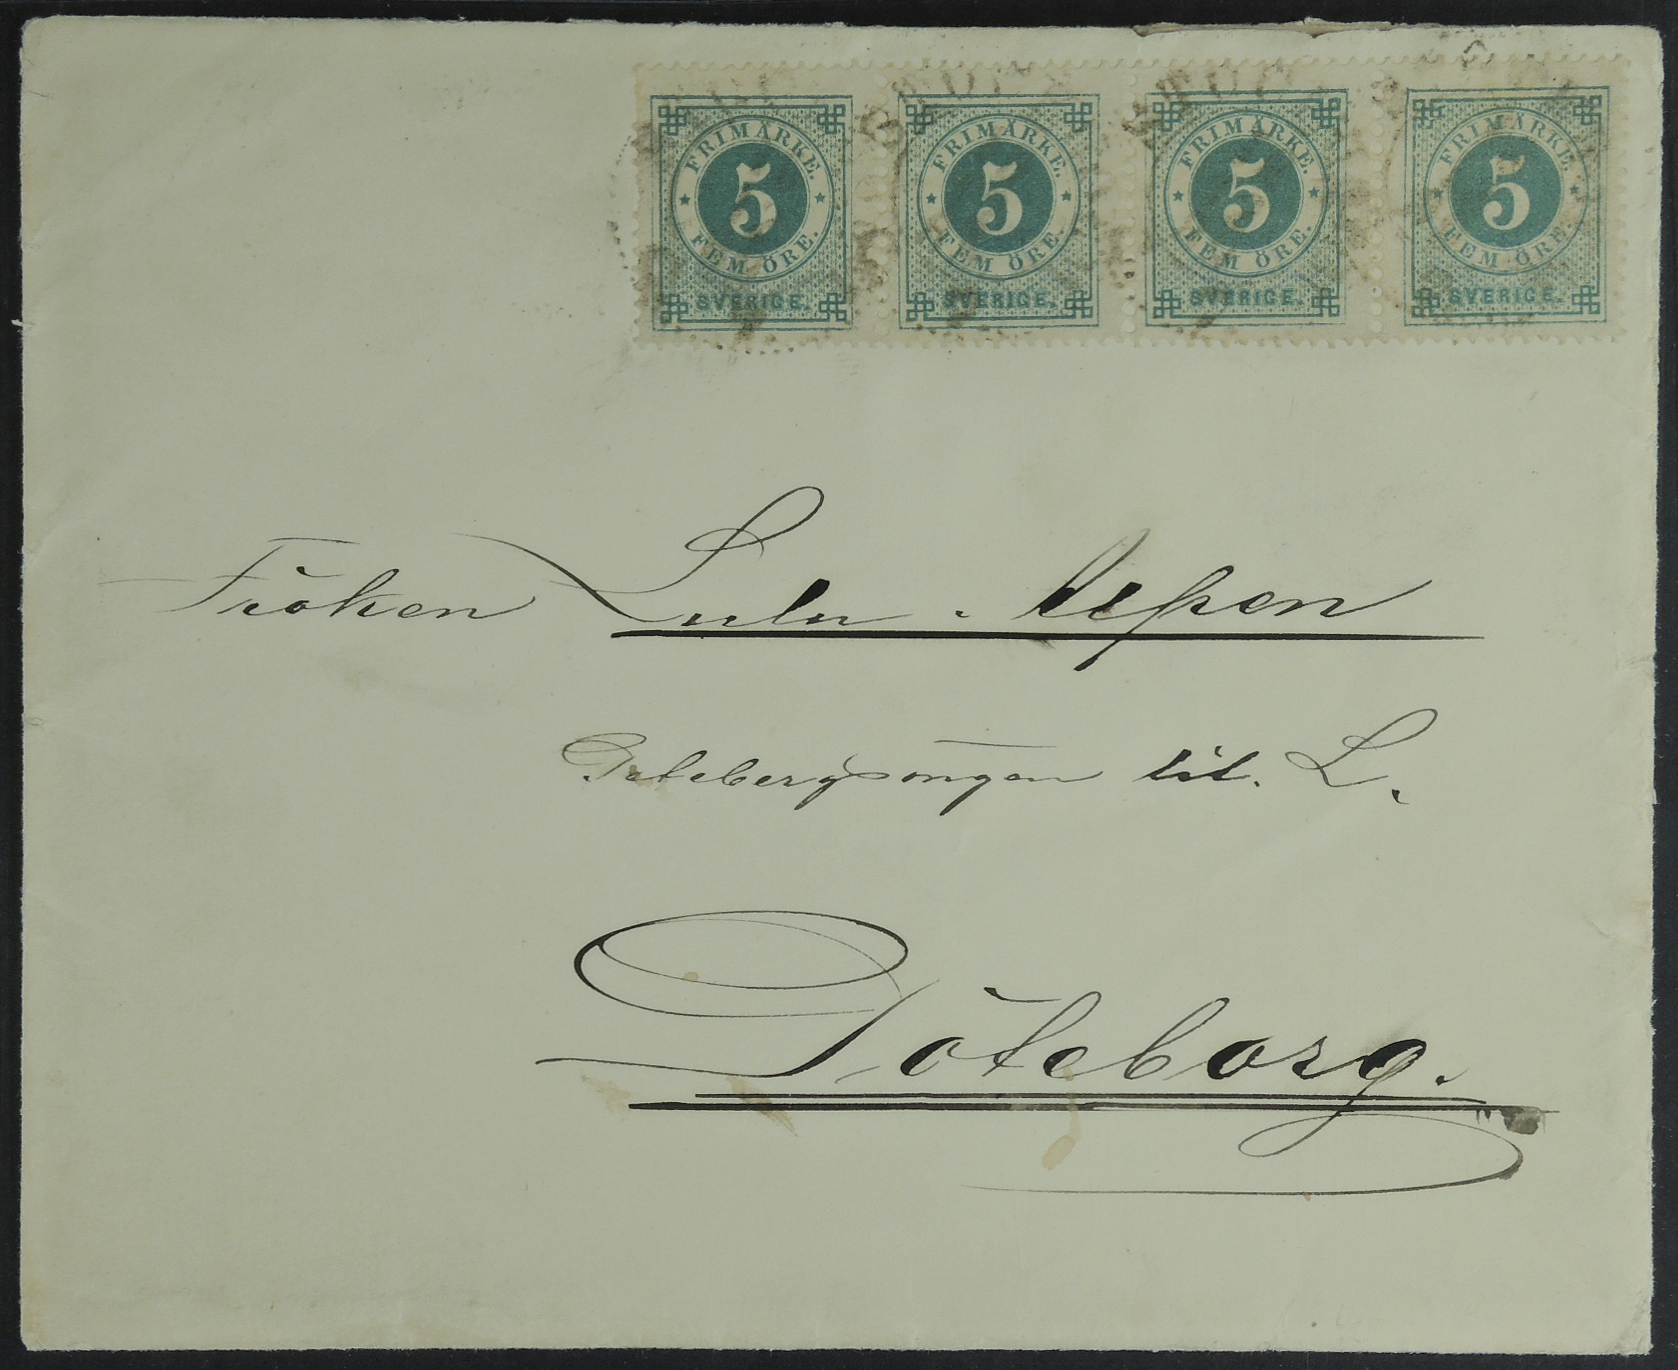 FRIMÄRKE. 5 FEM ÖRE. SVERIGE.
FRIMÄRKE. 5 FEM ÖRE. SVERIGE.
FRIMÄRKE. 5 FEM ÖRE. SVERIGE.
FRIMÄRKE. 5 FEM ÖRE. SVERIGE.
Fröken Lulu
lit. L.
Göteborg.